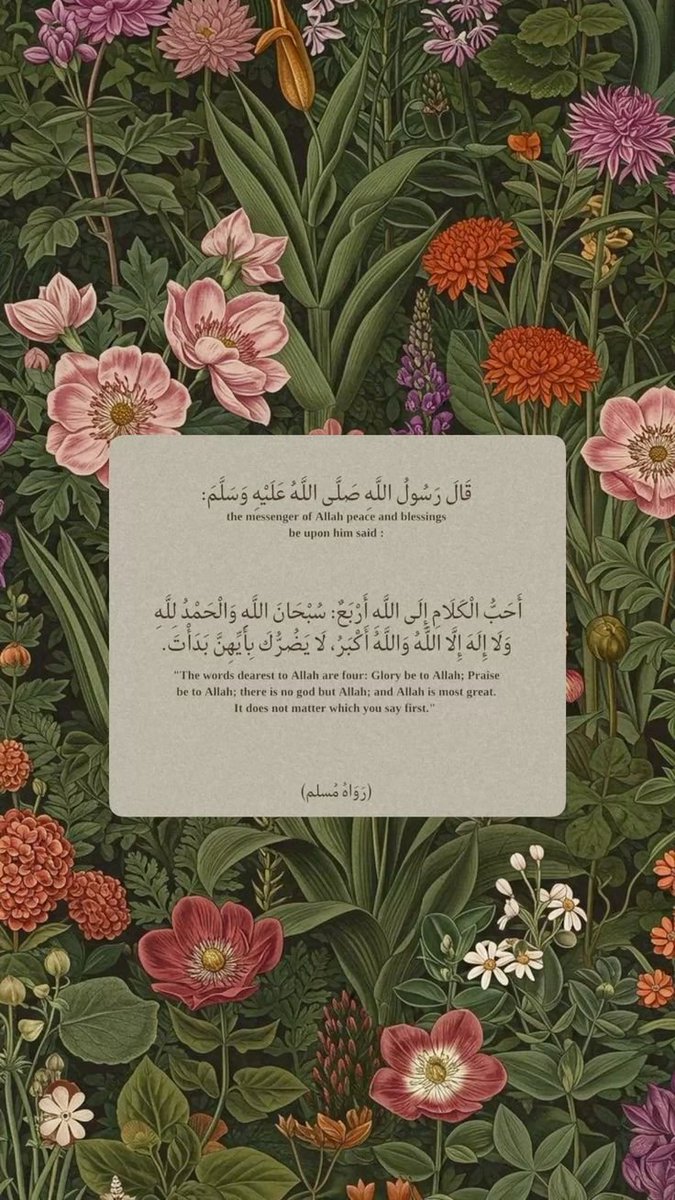 قَالَ رَسُولُ اللَّهِ صَلَّى اللَّهُ عَلَيْهِ وَسَلَّمَ:
the messenger of Allah peace and blessings
be upon him said :
أَحَبُّ الْكَلَامِ إِلَى اللَّه أَرْبَعٌ: سُبْحَانَ اللَّه وَالْحَمْدُ لِلَّه
وَلَا إِلَهَ إِلَّا اللَّهُ وَاللَّهُ أَكْبَرُ، لَا يَضُرُّكَ بِأَيِّهِنَّ بَدَأْتَ.
"The words dearest to Allah are four: Glory be to Allah; Praise
be to Allah; there is no god but Allah; and Allah is most great.
It does not matter which you say first."
(رَوَاهُ مُسلم)